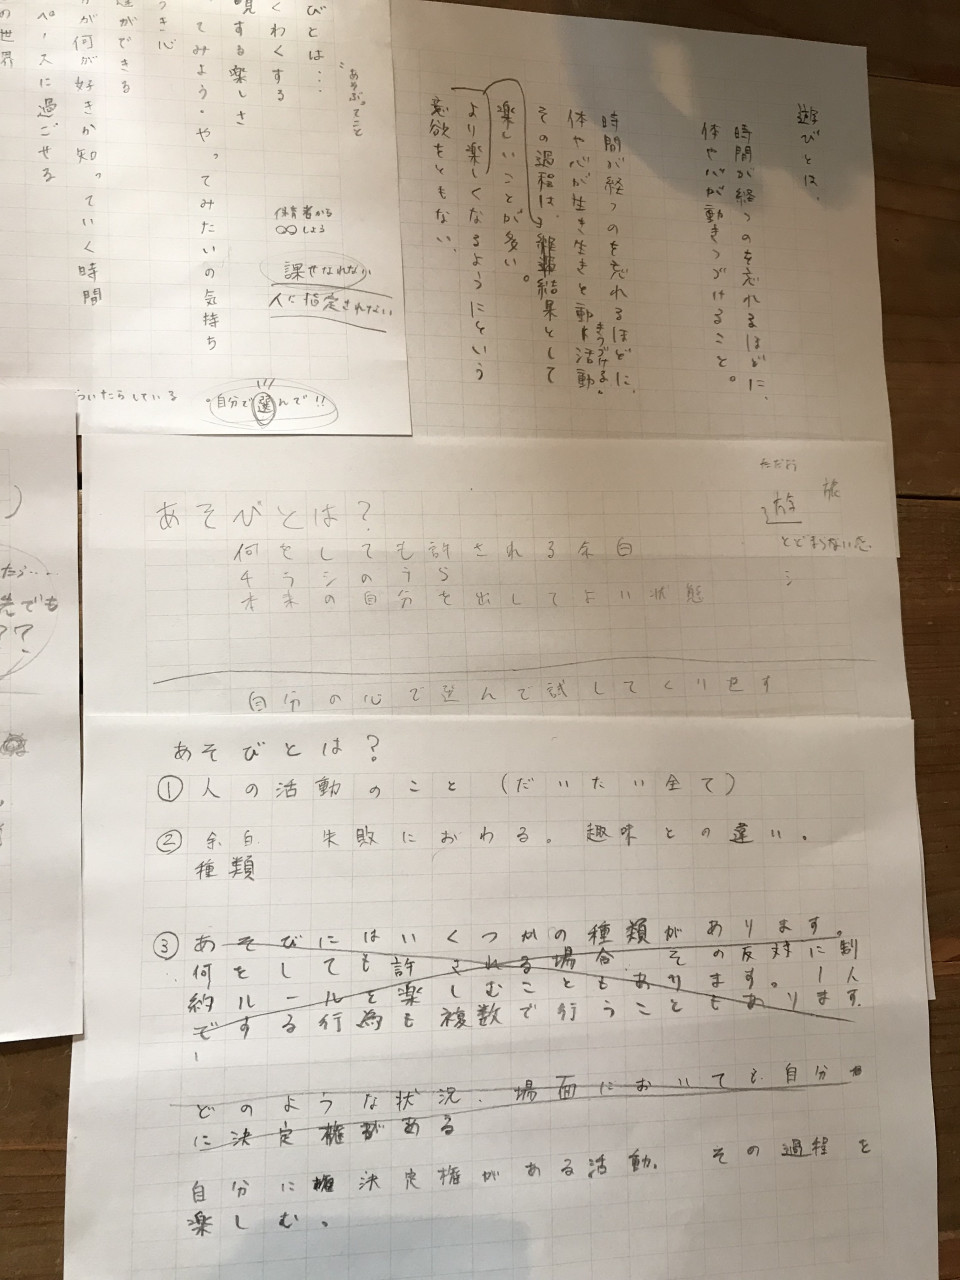 びとは…
くわくする
する楽しさ
てみよう・やってみたいの気持ち
つき心
ができる
が何が好きか知っていく時間
ペースに過ごせる
の世界
あそぶってこと
保育者から
〇〇しよう
課せなれない
人に指定されない
いたらしている
・自分で選んで!!
遊びとは、
時間が経つのを忘れるほどに、
体や心が動きつづけること。
時間が経つのを忘れるほどに、
体や心が生き生きと動き活動
きつづける。
その過程は、結果として
楽しいことが多い。
より楽しくなるようにという
意欲をともない、
たら……
でも
??
あそびとは?
何をしても許される余白
チラシのうら
本来の自分を出してよい状態
自分の心で選んで試してくり返す
遊
旅
とどまらない
あそびとは?
① 人の活動のこと (だいたい全て)
② 余白 失敗におわる。趣味との違い。
種類
③ あそびにはいくつかの種類があります。
何をしても許される場合、その反対に制
約ルールを楽しむこともあります。1人
でする行為も複数で行うこともあります。
どのような状況、場面においても、自分
に決定権がある
自分に決定権がある活動。その過程を
楽しむ。